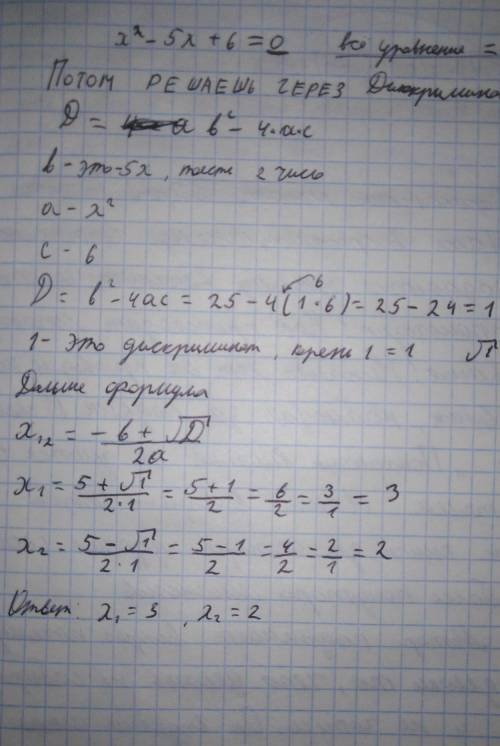 x² - 5x + 6 = 0 все уравнение =
Потом РЕШАЕШЬ ЧЕРЕЗ Дискримина
D = b² - 4·a·c
b - это -5x, 2 число
a - x²
c - 6
6
D = b² - 4ac = 25 - 4(1·6) = 25 - 24 = 1
1 - это дискриминант, корень 1 = 1 √1
Дальше формула
x₁,₂ = (-b + √D) / 2a
x₁ = (5 + √1) / (2·1) = (5 + 1) / 2 = 6/2 = 3/1 = 3
x₂ = (5 - √1) / (2·1) = (5 - 1) / 2 = 4/2 = 2/1 = 2
Ответ: x₁ = 3, x₂ = 2